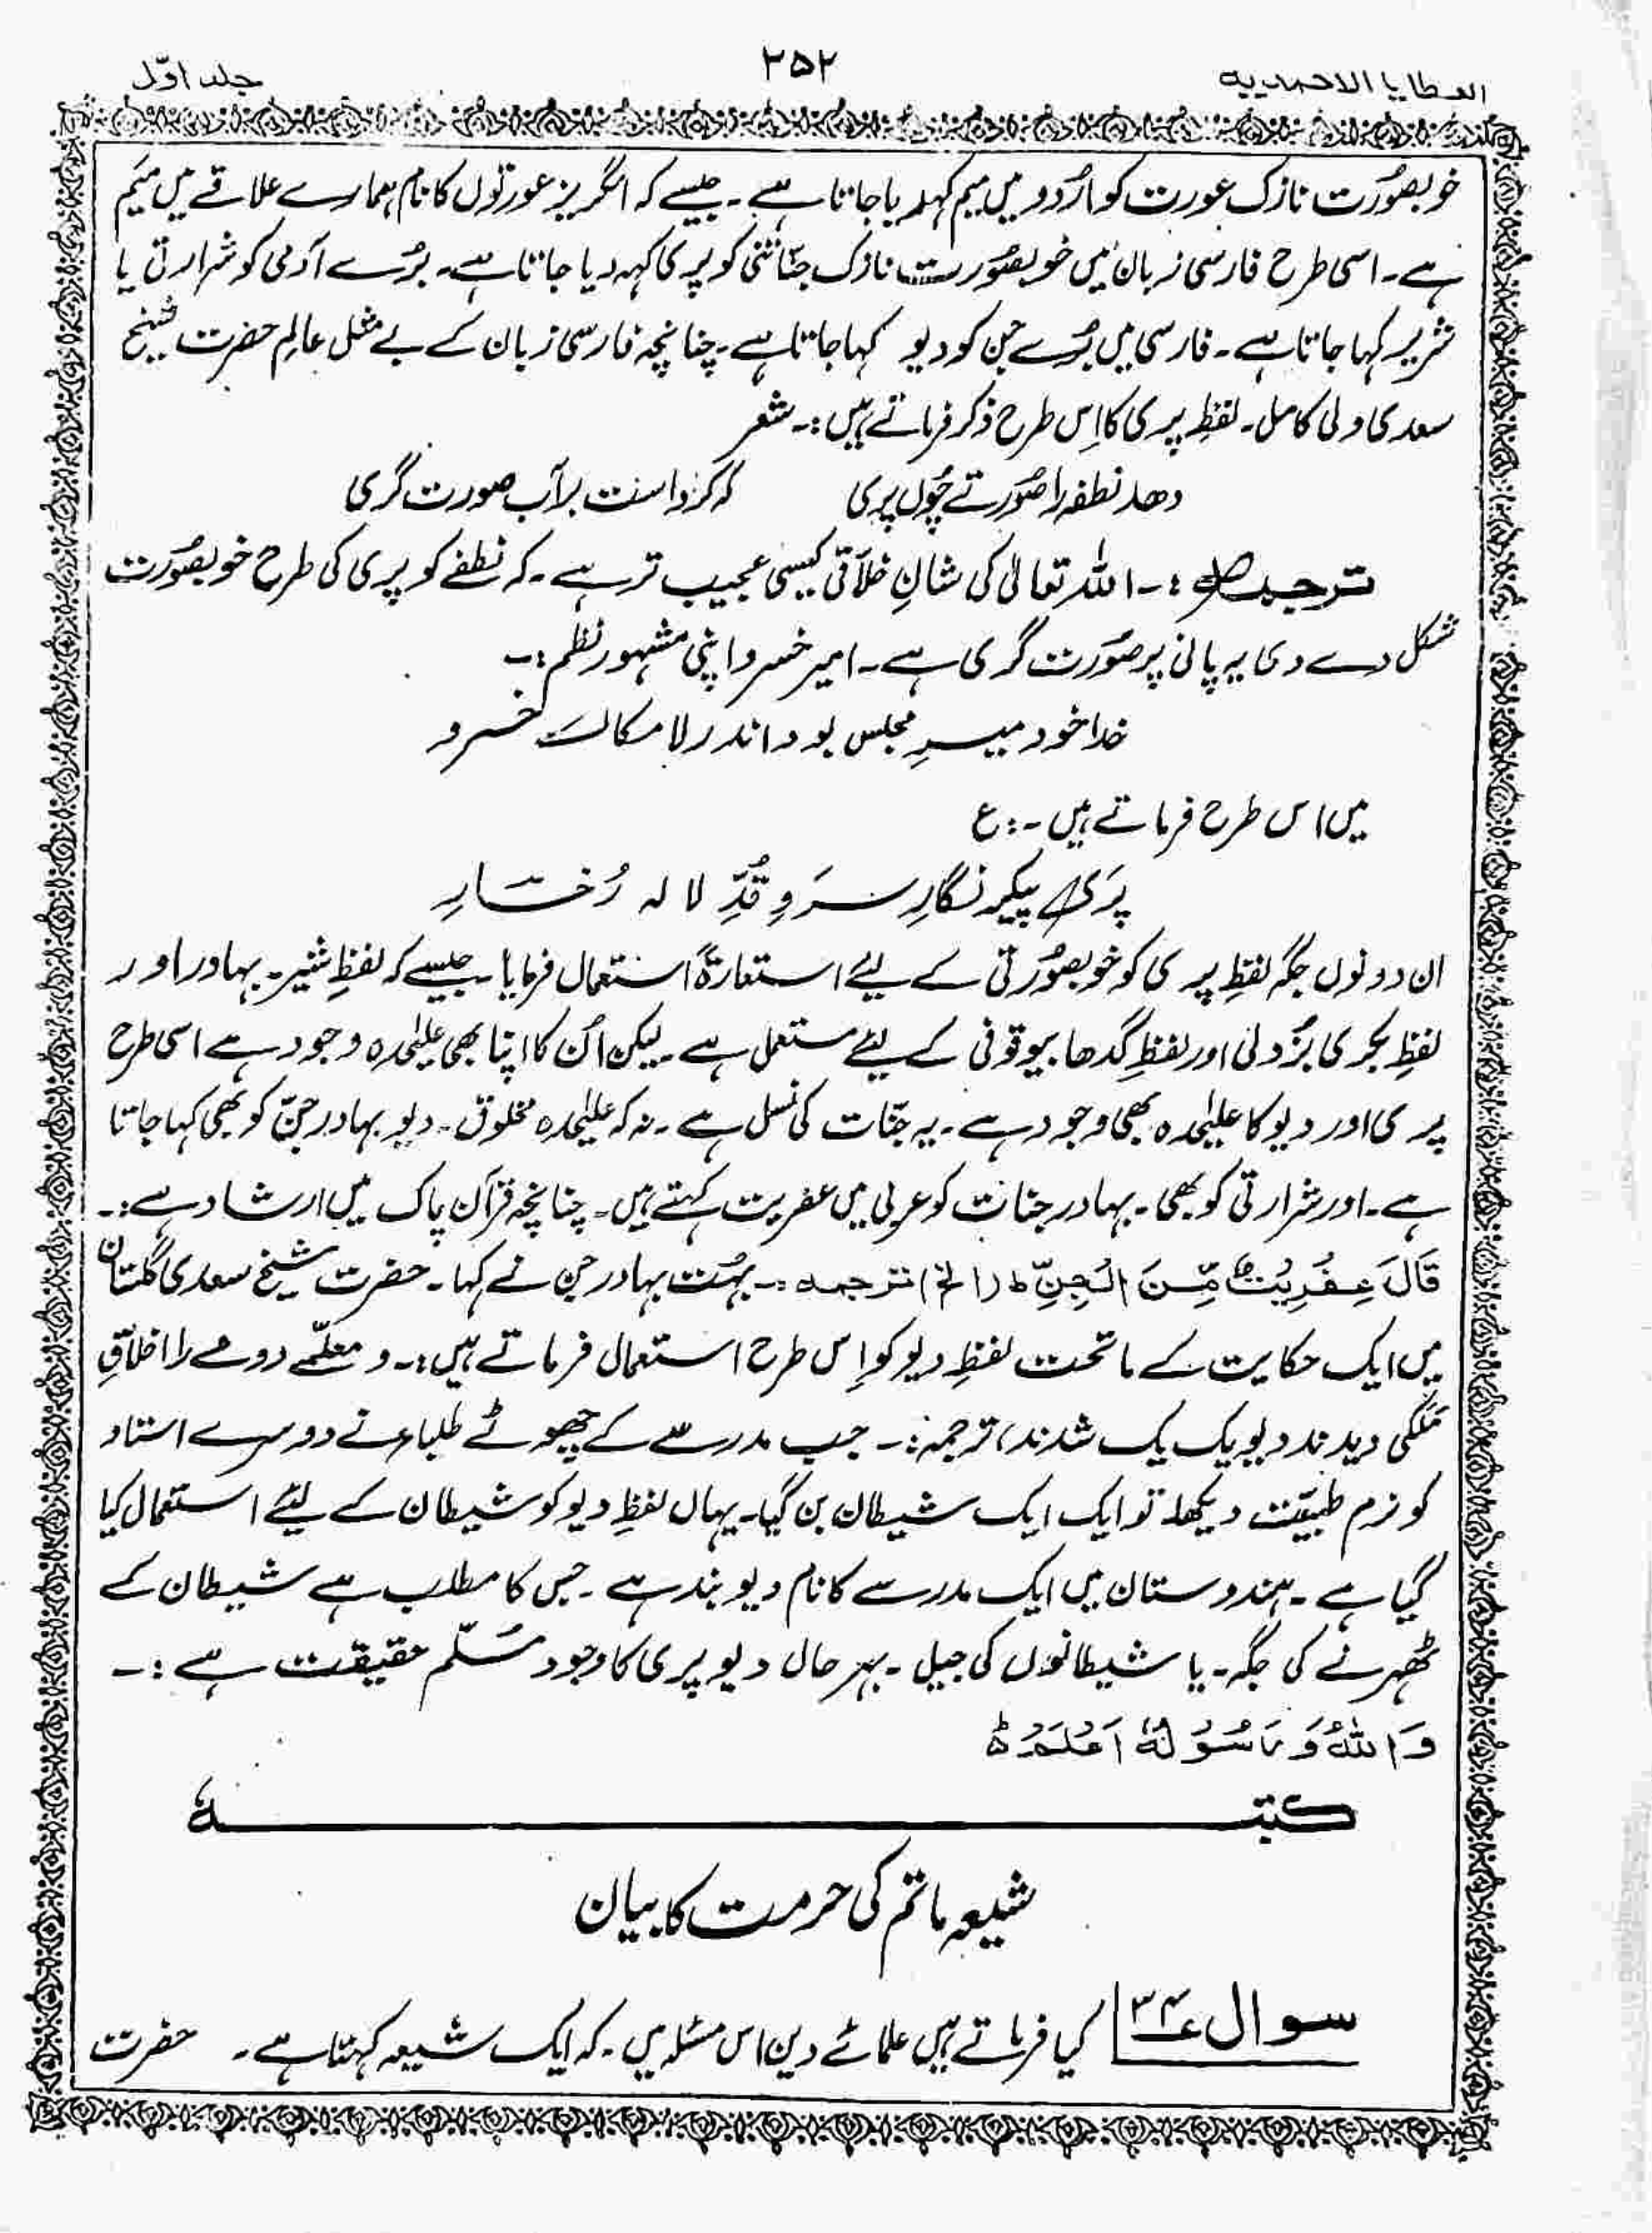 العطایا الاحمدیہ
۲۵۲
جلد اوّل
خوبصُورت نازک عورت کو اُردو میں میم کہدیا جاتا ہے۔ جیسے کہ انگریز عورتوں کا نام ہمارے علاقے میں میَم
ہے۔ اسی طرح فارسی زبان میں خوبصُورت نازک جنّاتنی کو پری کہہ دیا جاتا ہے۔ بُرے آدمی کو شرارتی یا
شریر کہا جاتا ہے۔ فارسی میں بُرے جن کو دیو کہا جاتا ہے۔ چنانچہ فارسی زبان کے بے مثل عالِم حضرت شیخ
سعدی ولی کامل۔ لفظِ پری کا اِس طرح ذکر فرماتے ہیں:۔ شعر
دھد نطفہ را صُورتے چُوں پری کہ کرد است بر آب صورت گری
ترجمہ:۔ اللہ تعالیٰ کی شانِ خلاّقی کیسی عجیب تر ہے۔ کہ نطفے کو پری کی طرح خوبصُورت
شکل دے دی یہ پانی پر صُورت گری ہے۔ امیر خسرو اپنی مشہور نظم:۔
خدا خود میرِ مجلس بود اندر لا مکاں خسرو
میں اس طرح فرماتے ہیں۔:ع
پَری پیکر نگارِ سَروِ قدِّ لا لہ رُخسَارِ
ان دونوں جگہ لفظِ پری کو خوبصُورتی کے لیئے استعارۃً استعمال فرمایا۔ جیسے کہ لفظِ شیر۔ بہادر اور
لفظِ بکری بُزدلی اور لفظِ گدھا بیوقوفی کے لیئے مستعمل ہے۔ لیکن اُن کا اپنا بھی علیٰحدہ وجود ہے اسی طرح
پری اور دیو کا علیٰحدہ بھی وجود ہے۔ یہ جنّات کی نسل ہے۔ نہ کہ علیٰحدہ مخلوق۔ دیو بہادر جنّ کو بھی کہا جاتا
ہے۔ اور شرارتی کو بھی۔ بہادر جنات کو عربی میں عفریت کہتے ہیں۔ چنانچہ قرآن پاک میں ارشاد ہے:۔
قَالَ عِفْرِیْتٌ مِّنَ الْجِنِّ ط (الخ) ترجمہ:۔ بہُت بہادر جن نے کہا۔ حضرت شیخ سعدی گلستان
میں ایک حکایت کے ماتحت لفظِ دیو کو اِس طرح استعمال فرماتے ہیں:۔ و معلّمے دومے را اخلاقِ
مَلکی دیدند دیو یک یک شدند، ترجمہ:۔ جب مدرسے کے چھوٹے طلباء نے دوسرے استاد
کو نرم طبیّت دیکھا۔ تو ایک ایک شیطان بن گیا۔ یہاں لفظِ دیو کو شیطان کے لیئے استعمال کیا
گیا ہے۔ ہندوستان میں ایک مدرسے کا نام دیوبند ہے۔ جس کا مطلب ہے شیطان کے
ٹھہرنے کی جگہ۔ یا شیطانوں کی جیل۔ بہر حال دیو پری کا وجود مُسلّم حقیقت ہے:۔
وَ اللّٰہُ وَ رَسُوْلُہٗ اَعْلَمُ ط
کتبہٗ
شیعہ ماتم کی حرمت کا بیان
سوال ۳۴ کیا فرماتے ہیں علمائے دین اس مسئلہ میں۔ کہ ایک شیعہ کہتا ہے۔ حضرت